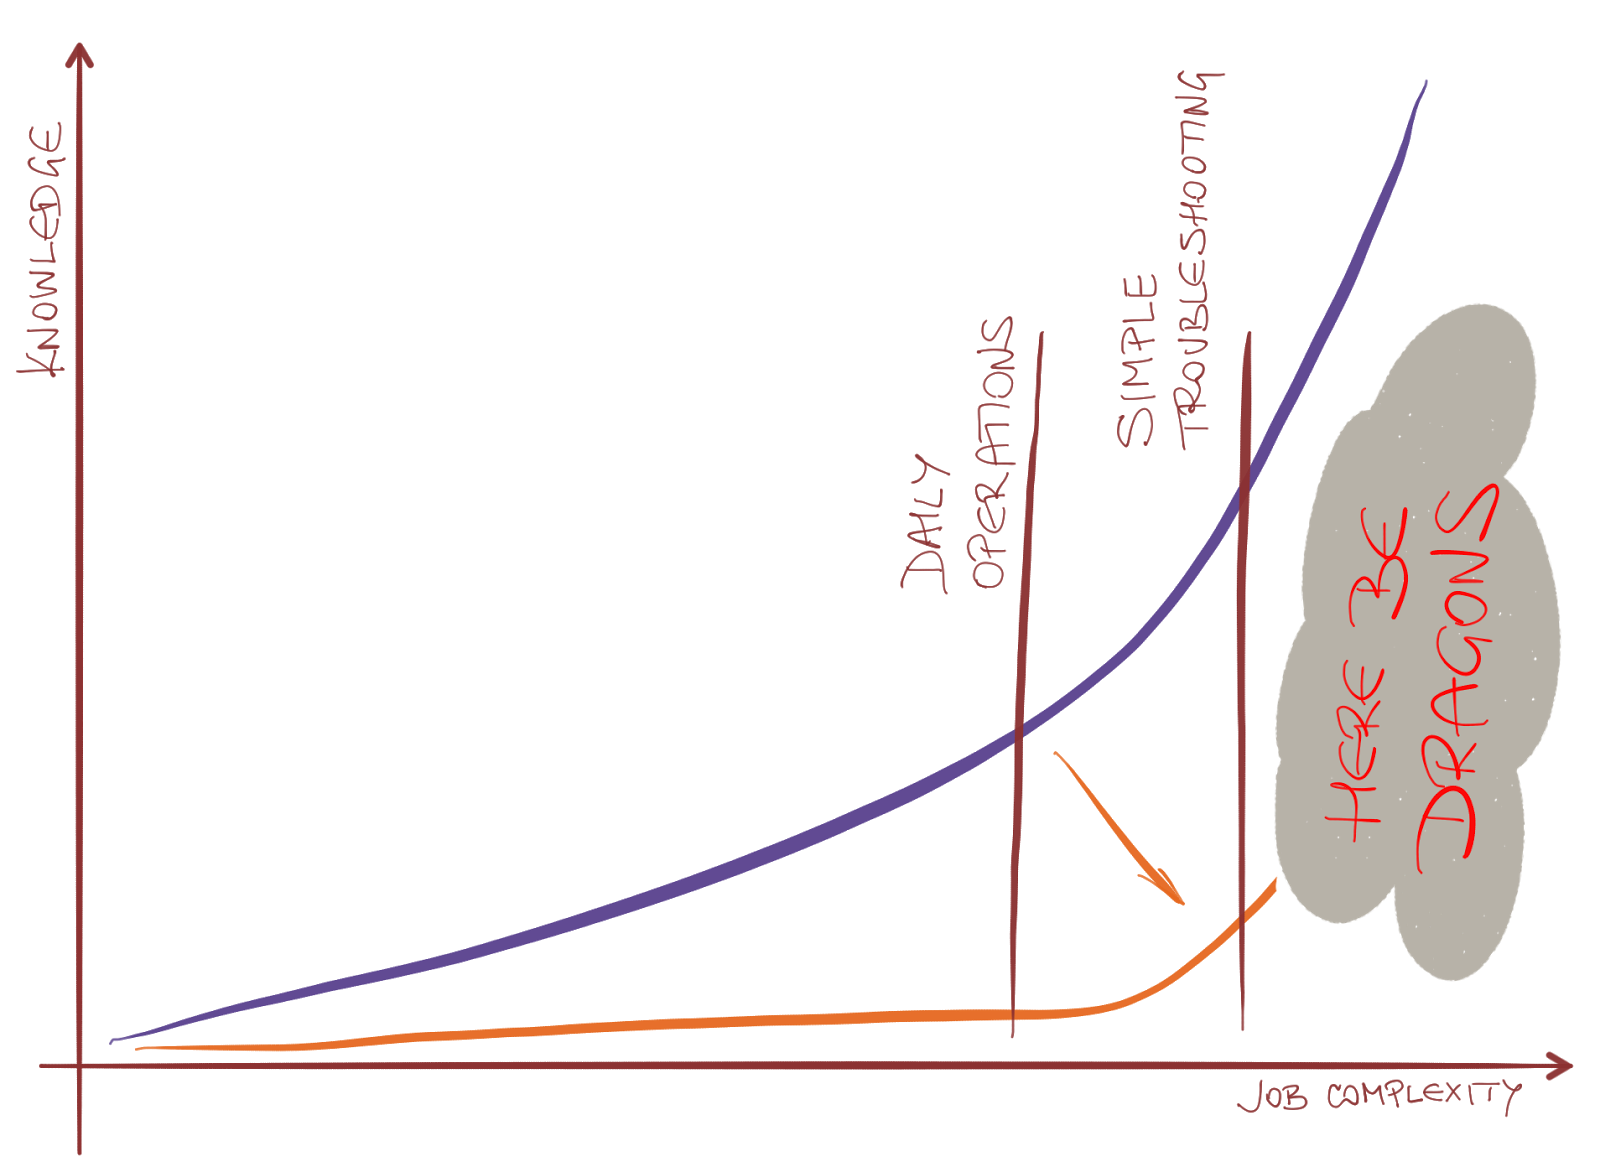 KNOWLEDGE
DAILY
OPERATIONS
SIMPLE
TROUBLESHOOTING
HERE BE
DRAGONS
JOB COMPLEXITY